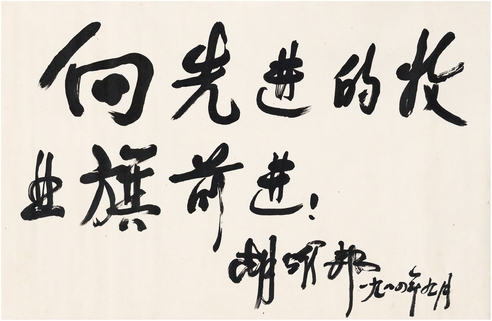 向先进的牧
业旗前进！
胡耀邦 一九八四年九月